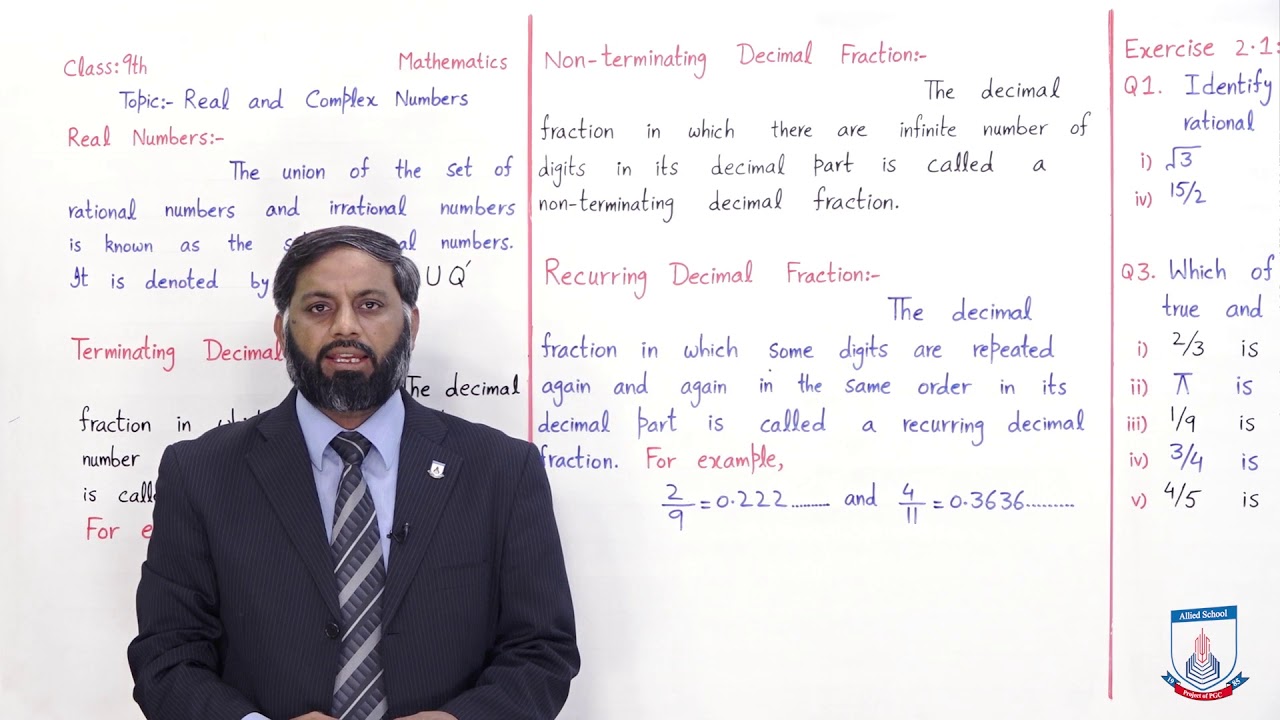 Class: 9th Mathematics
Topic:- Real and Complex Numbers
Real Numbers:-
The union of the set of
rational numbers and irrational numbers
is known as the numbers.
It is denoted by U Q′
Terminating Decimal
The decimal
fraction in
number
is
For
Non-terminating Decimal Fraction:-
The decimal
fraction in which there are infinite number of
digits in its decimal part is called a
non-terminating decimal fraction.
Recurring Decimal Fraction:-
The decimal
fraction in which some digits are repeated
again and again in the same order in its
decimal part is called a recurring decimal
fraction. For example,
2/9 = 0.222......... and 4/11 = 0.3636.........
Exercise 2.1:
Q1. Identify
rational
i) √3
iv) 15/2
Q3. Which of
true and
i) 2/3 is
ii) π is
iii) 1/9 is
iv) 3/4 is
v) 4/5 is
Allied School
19 85
Project of PGC